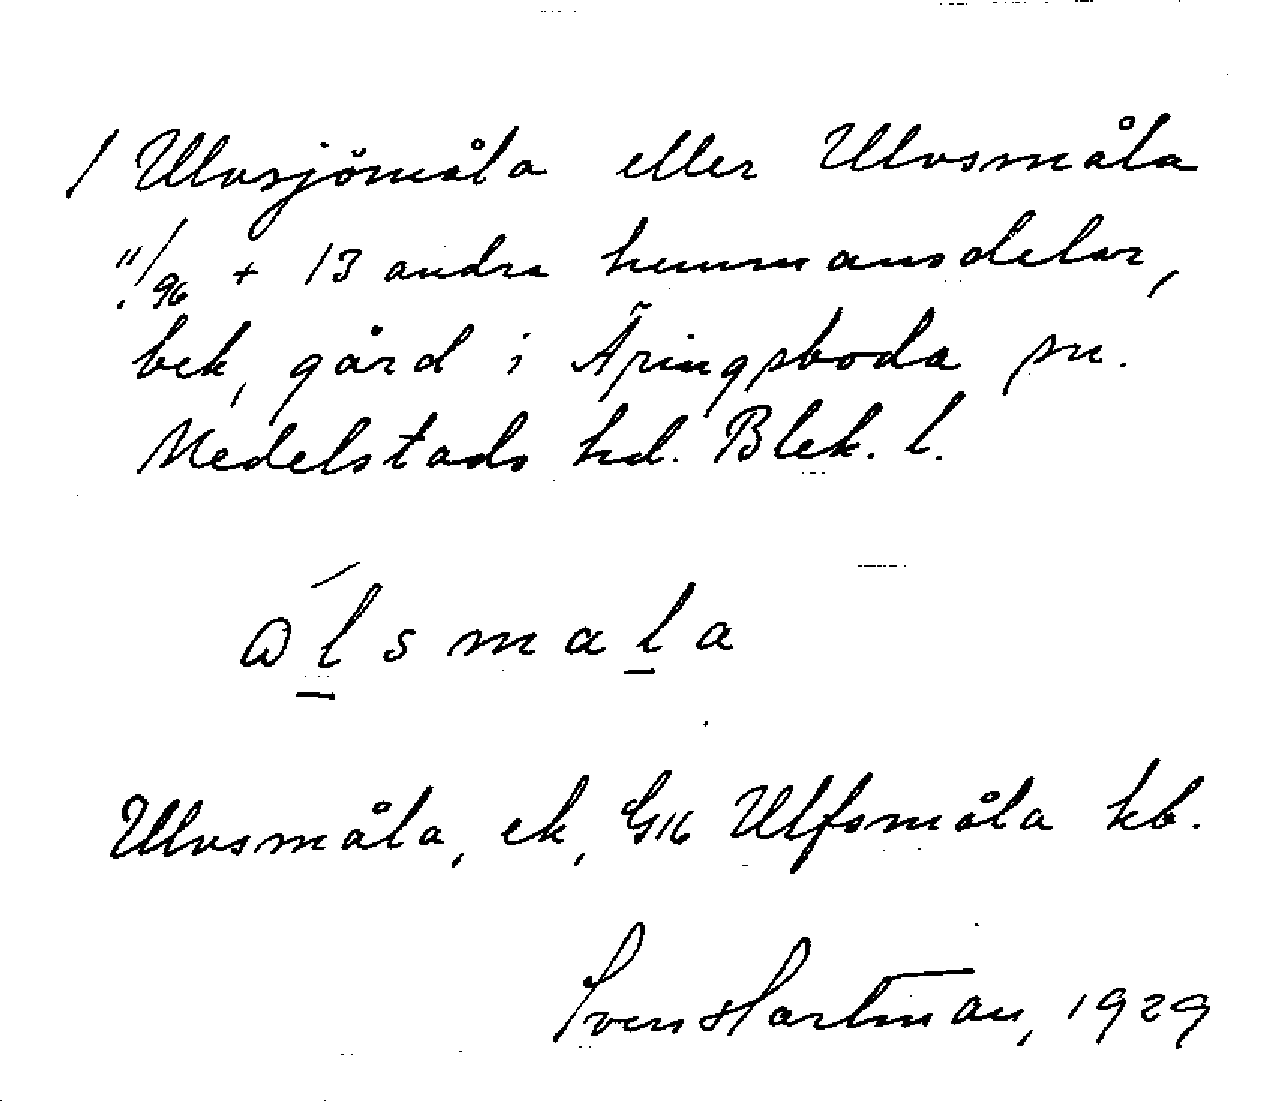 / Ulvsjömåla eller Ulvsmåla
11/96 + 13 andra hemmansdelar,
bek, gård i Äringsboda sn.
Medelstads hd. Blek. l.
ålsmala
Ulvsmåla, ek, GK Ulfsmåla kb.
Sven Hartman, 1929